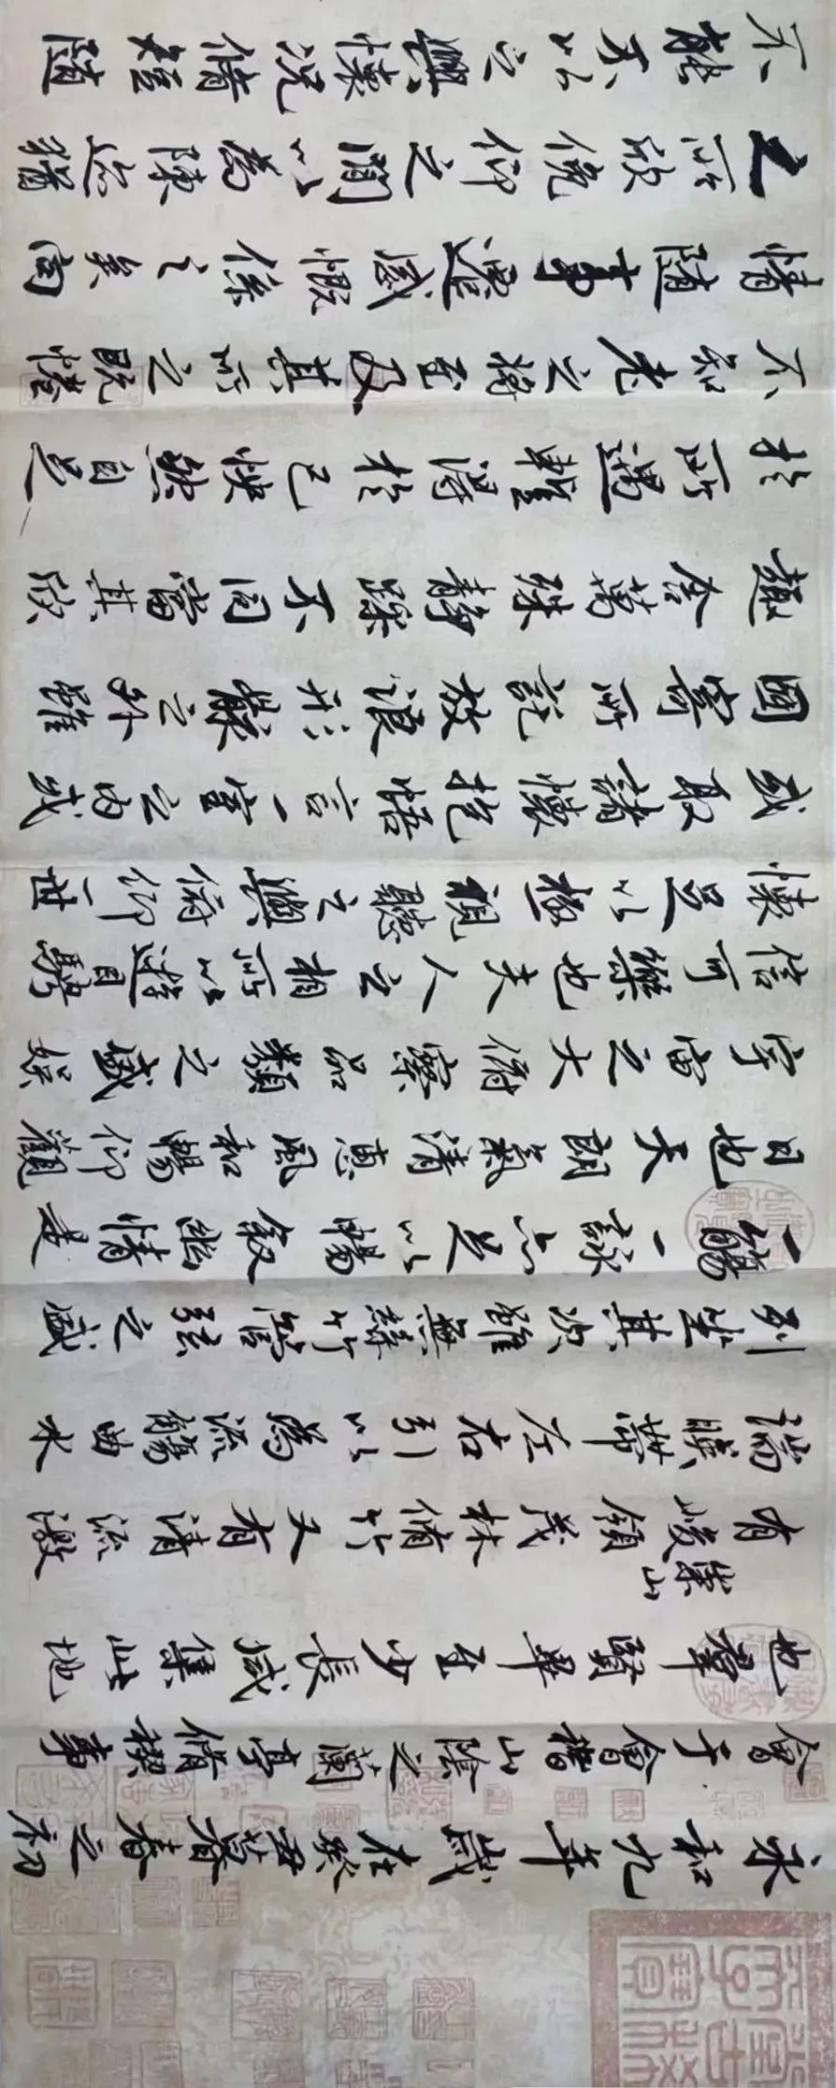 永和九年歲在癸丑暮春之初
會于會稽山陰之蘭亭脩禊事
也羣賢畢至少長咸集此地
有崇山峻領茂林脩竹又有清流激
湍暎帶左右引以為流觴曲水
列坐其次雖無絲竹管弦之盛
一觴一詠亦足以暢敘幽情是
日也天朗氣清惠風和暢仰觀
宇宙之大俯察品類之盛娛
信可樂也夫人之相所以遊目騁
懷足以極視聽之與俯仰一世
或取諸懷抱悟言一室之內或
因寄所託放浪形骸之外雖
趣舍萬殊靜躁不同當其欣
於所遇暫得於己快然自足
不知老之將至及其所之既惓
情隨事遷感慨係之矣向
之所欣俛仰之閒以為陳迹猶
不能不以之興懷況脩短隨